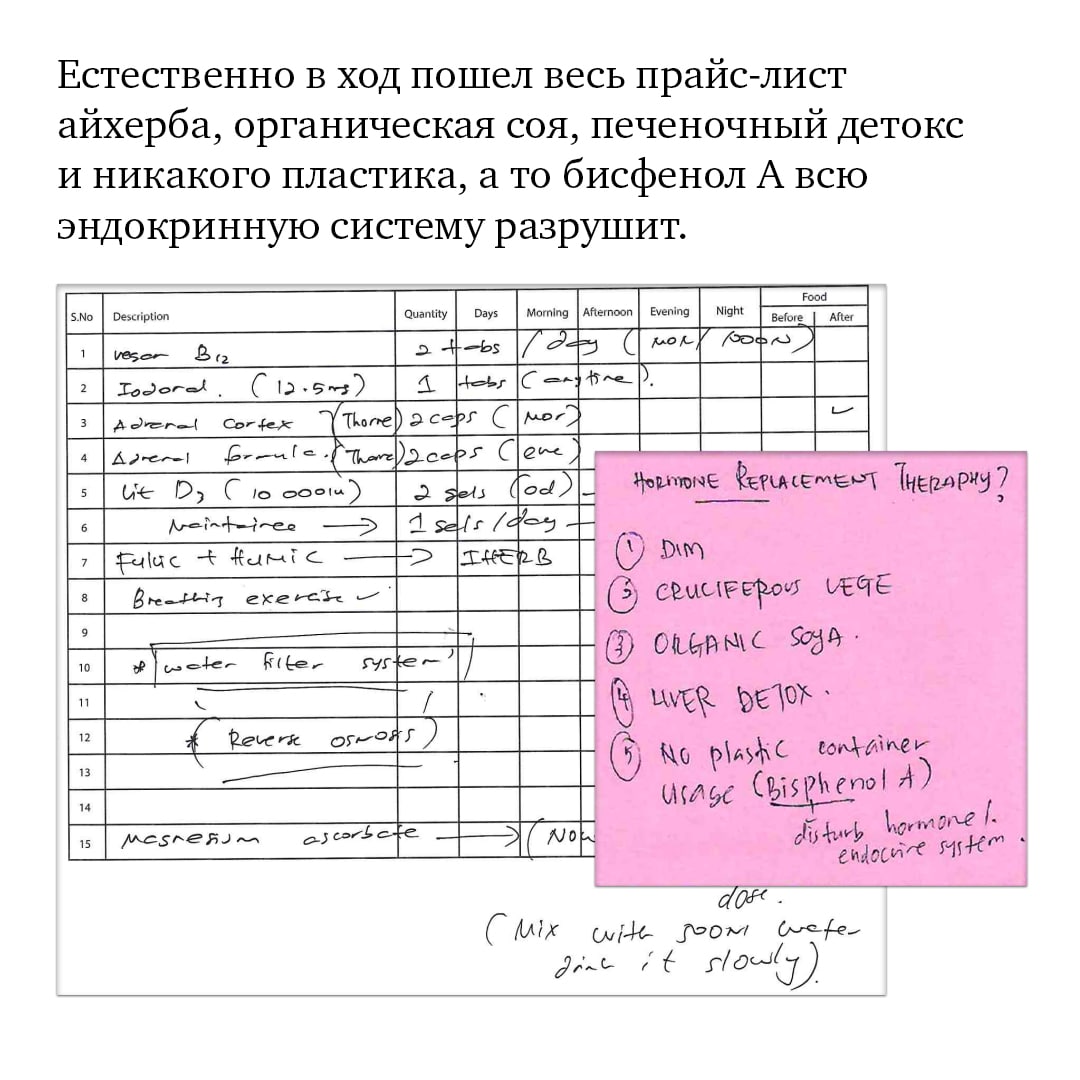 Естественно в ход пошел весь прайс-лист
айхерба, органическая соя, печеночный детокс
и никакого пластика, а то бисфенол А всю
эндокринную систему разрушит.
S.No Description Quantity Days Morning Afternoon Evening Night Food
Before After
1 vegan B12 2 tabs / day ( mor / noon)
2 Iodoral. (12.5mg) 1 tabs (anytime).
3 Adrenal cortex (Thorne) 2 caps ( mor)
4 Adrenal formula. (Thorne) 2 caps ( eve)
5 Vit D3 ( 10 000iu) 2 gels (od)
6 Maintainee → 1 gels / day
7 Fulvic + Humic → IHERB
8 Breathing exercise ✓
9
10 * water filter system
11
12 * (Reverse osmosis)
13
14
15 Magnesium ascorbate → (Now
dose.
(Mix with 500ml water
drink it slowly).
HORMONE REPLACEMENT THERAPHY?
① DIM
② CRUCIFEROUS VEGE
③ ORGANIC SOYA.
④ LIVER DETOX.
⑤ No plastic container
usage (Bisphenol A)
disturb hormone /.
endocrine system.